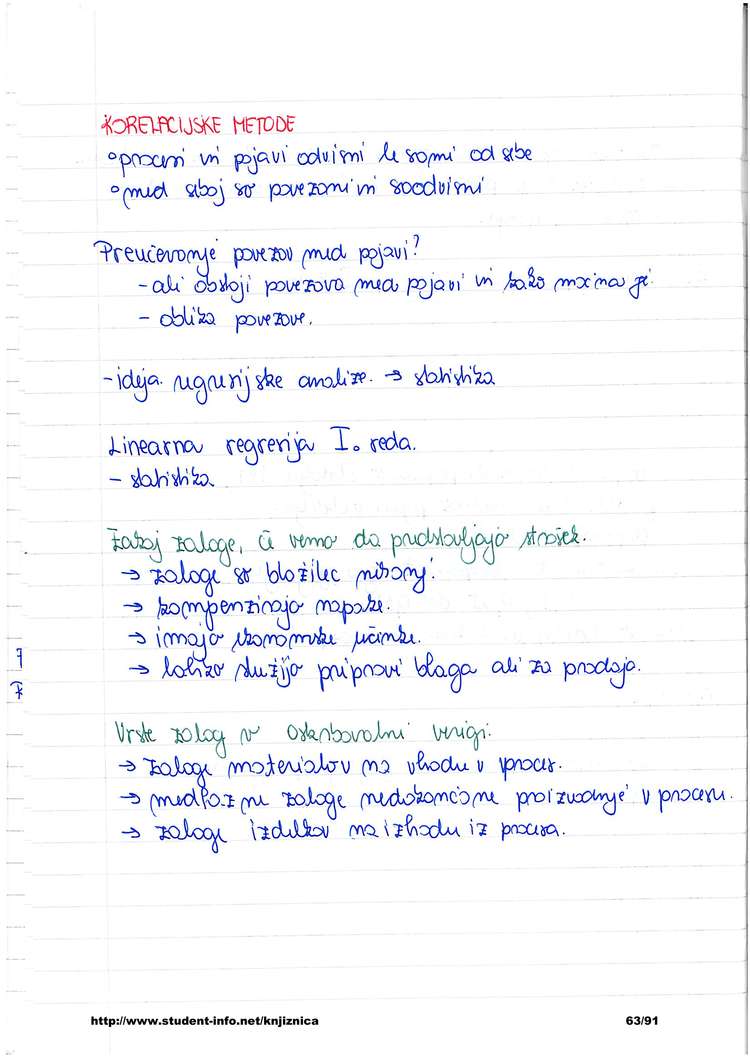 KORELACIJSKE METODE
° procesi in pojavi odvisni le sami od sebe
° med seboj so povezani in soodvisni
Preučevanje povezav med pojavi?
- ali obstoji povezava med pojavi in kako močna je
- oblika povezave.
- ideja regresijske analize. → statistika
Linearna regresija I. reda.
- statistika
Zakaj zaloge, če vemo da predstavljajo strošek.
→ zaloge so blažilec nihanj.
→ kompenzirajo napake.
→ imajo ekonomske učinke.
→ lahko služijo pripravi blaga ali za prodajo.
Vrste zalog v oskrbovalni verigi.
→ zaloge materialov na vhodu v proces.
→ medfazne zaloge nedokončane proizvodnje v procesu.
→ zaloge izdelkov na izhodu iz procesa.
http://www.student-info.net/knjiznica 63/91